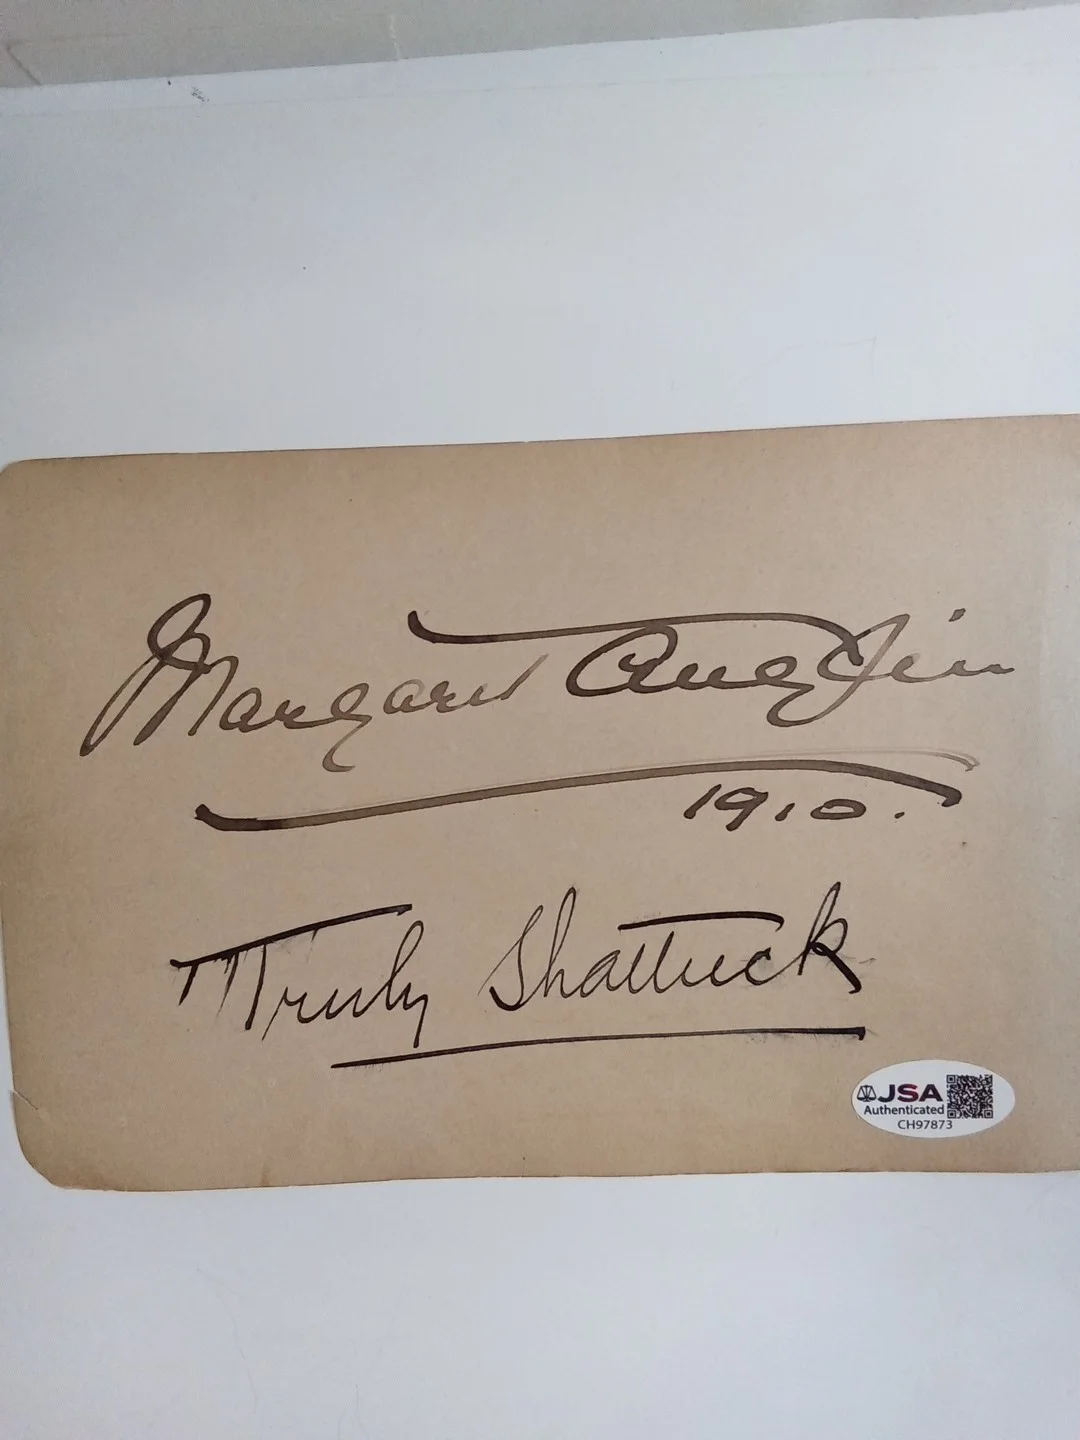 Margaret Anglin
1910.
Truly Shattuck
JSA
Authenticated
CH97873